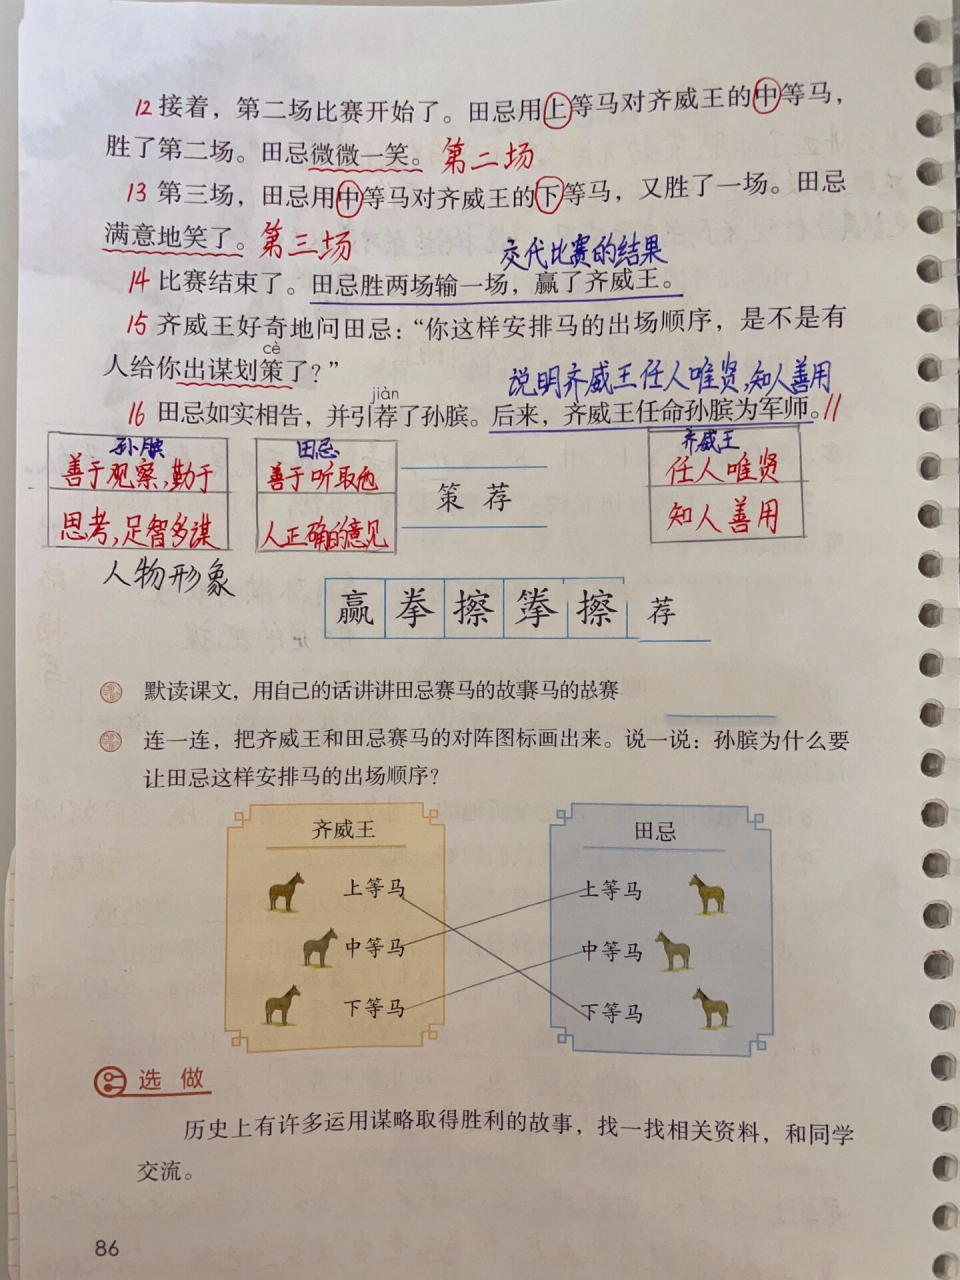 12 接着，第二场比赛开始了。田忌用上等马对齐威王的中等马，
胜了第二场。田忌微微一笑。 第二场
13 第三场，田忌用中等马对齐威王的下等马，又胜了一场。田忌
满意地笑了。 第三场 交代比赛的结果
14 比赛结束了。田忌胜两场输一场，赢了齐威王。
15 齐威王好奇地问田忌：“你这样安排马的出场顺序，是不是有
cè
人给你出谋划策了？” 说明齐威王任人唯贤，知人善用
jiàn
16 田忌如实相告，并引荐了孙膑。后来，齐威王任命孙膑为军师。//
孙膑 田忌 齐威王
善于观察，勤于 善于听取他 任人唯贤
策 荐
思考，足智多谋 人正确的意见 知人善用
人物形象
赢 拳 擦 擦 荐
默读课文，用自己的话讲讲田忌赛马的故事
连一连，把齐威王和田忌赛马的对阵图标画出来。说一说：孙膑为什么要
让田忌这样安排马的出场顺序？
齐威王 田忌
上等马 上等马
中等马 中等马
下等马 下等马
选做
历史上有许多运用谋略取得胜利的故事，找一找相关资料，和同学
交流。
86